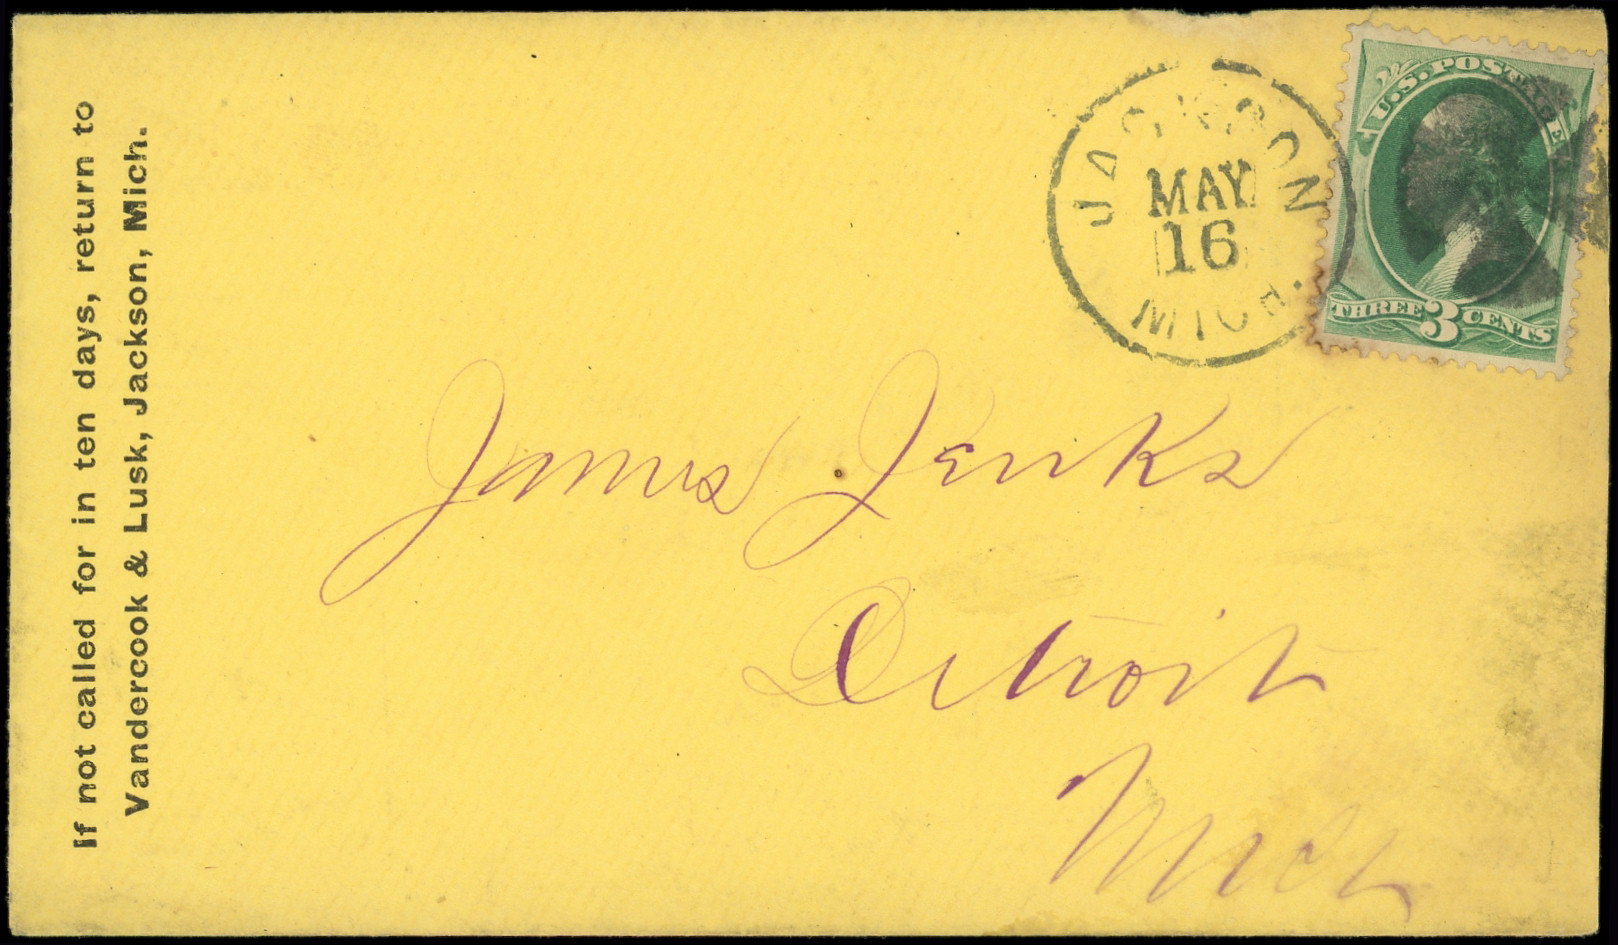 If not called for in ten days, return to
Vandercook & Lusk, Jackson, Mich.
JACKSON
MAY
16
MICH.
U.S. POSTAGE
THREE 3 CENTS
James Jenks
Detroit
Mich